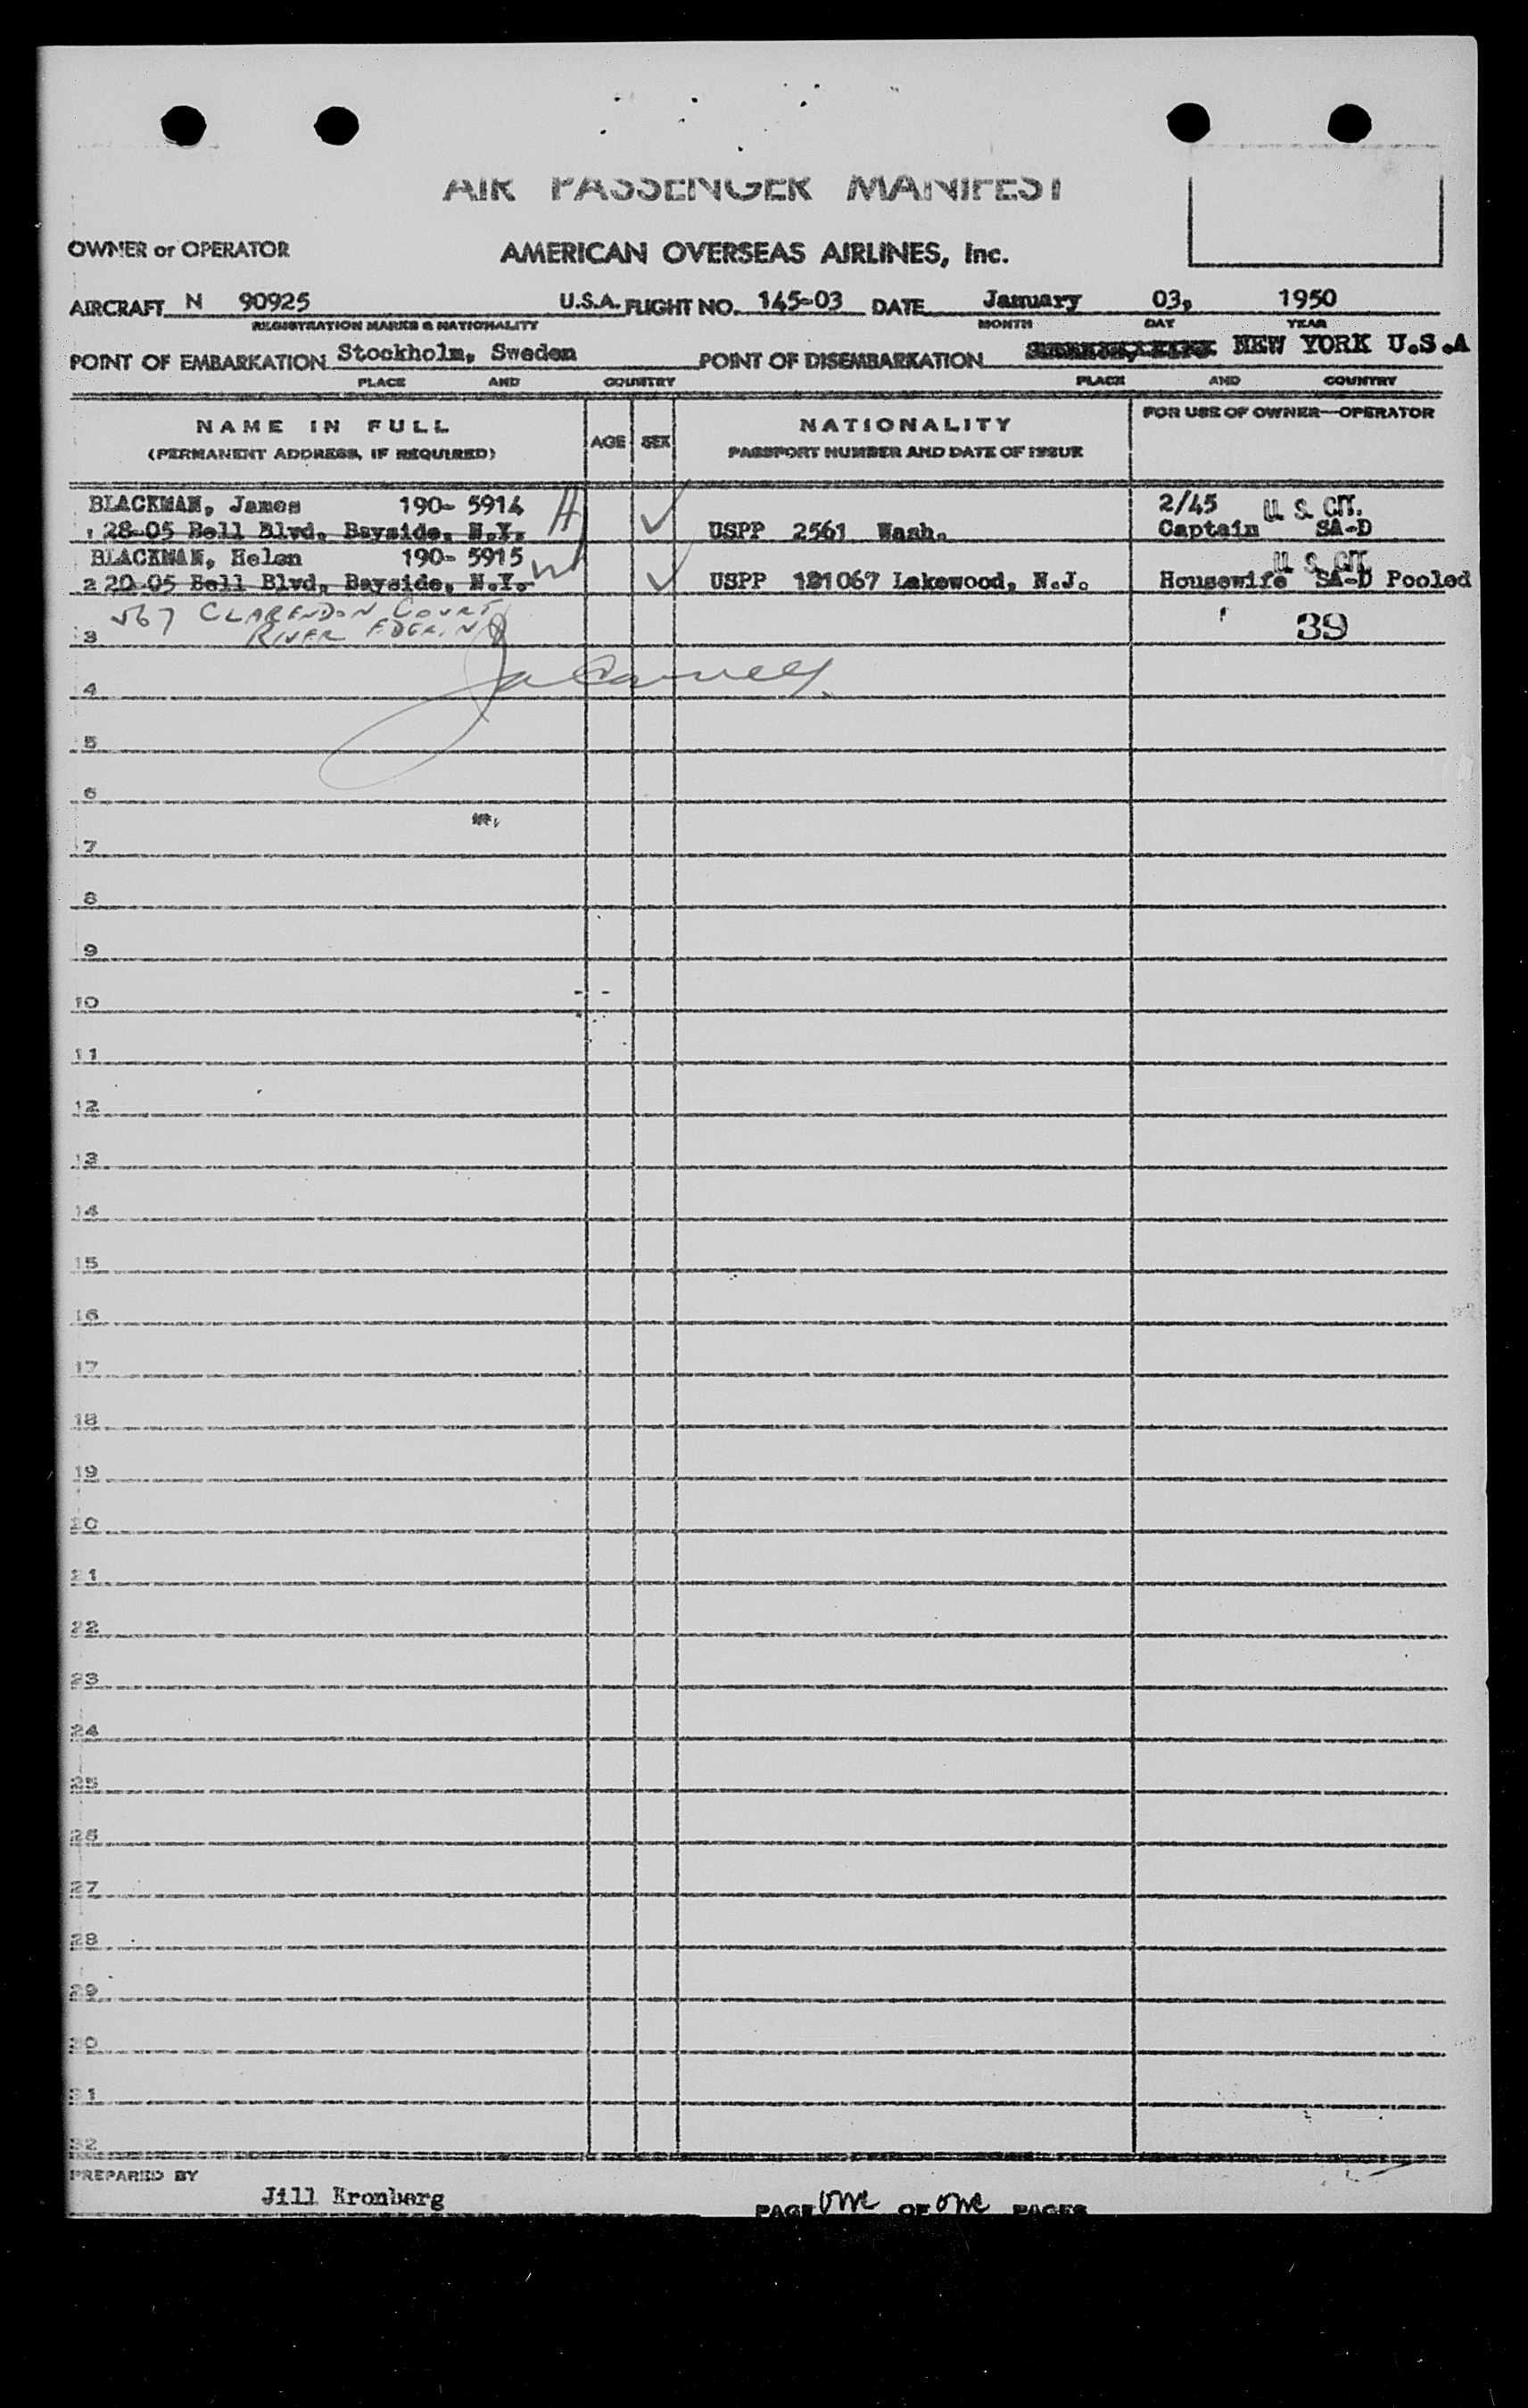 AIR PASSENGER MANIFEST
OWNER or OPERATOR AMERICAN OVERSEAS AIRLINES, Inc.
AIRCRAFT N 90925 U.S.A. FLIGHT NO. 145-03 DATE January 03, 1950
REGISTRATION MARKS & NATIONALITY MONTH DAY YEAR
POINT OF EMBARKATION Stockholm, Sweden POINT OF DISEMBARKATION NEW YORK U.S.A
PLACE AND COUNTRY PLACE AND COUNTRY
NAME IN FULL
(PERMANENT ADDRESS, IF REQUIRED)
AGE SEX
NATIONALITY
PASSPORT NUMBER AND DATE OF ISSUE
FOR USE OF OWNER—OPERATOR
BLACKMAN, James 190- 5914 2/45 U. S. CIT.
1 28-05 Bell Blvd. Bayside. N.Y. USPP 2561 Wash. Captain SA-D
BLACKMAN, Helen 190- 5915 U. S. CIT.
2 20-05 Bell Blvd. Bayside. N.Y. USPP 121067 Lakewood, N.J. Housewife SA-D Pooled
567 CLARENDON COURT
3 RIVER EDGE, NJ 39
4
5
6
7
8
9
10
11
12
13
14
15
16
17
18
19
20
21
22
23
24
25
26
27
28
29
30
31
32
PREPARED BY
Jill Kronberg PAGE one OF one PAGES